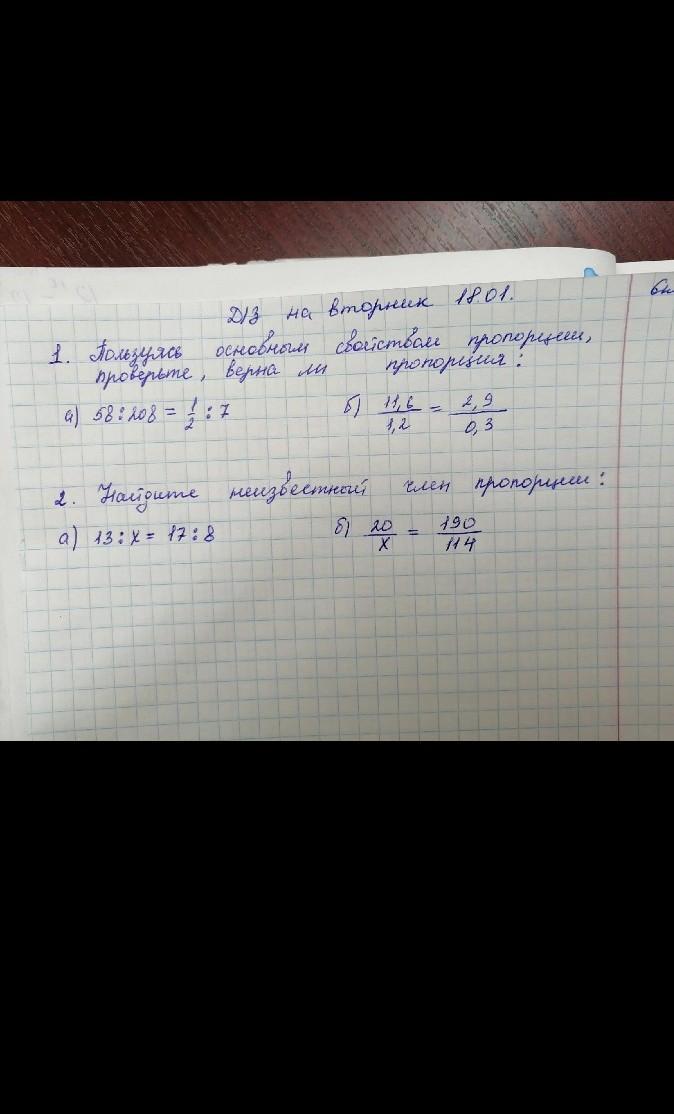 Д/З на вторник 18.01.
1. Пользуясь основным свойством пропорции,
проверьте, верна ли пропорция:
а) 58:208 = 1/2 : 7 б) 11,6/1,2 = 2,9/0,3
2. Найдите неизвестный член пропорции:
а) 13:x = 17:8 б) 20/x = 190/114